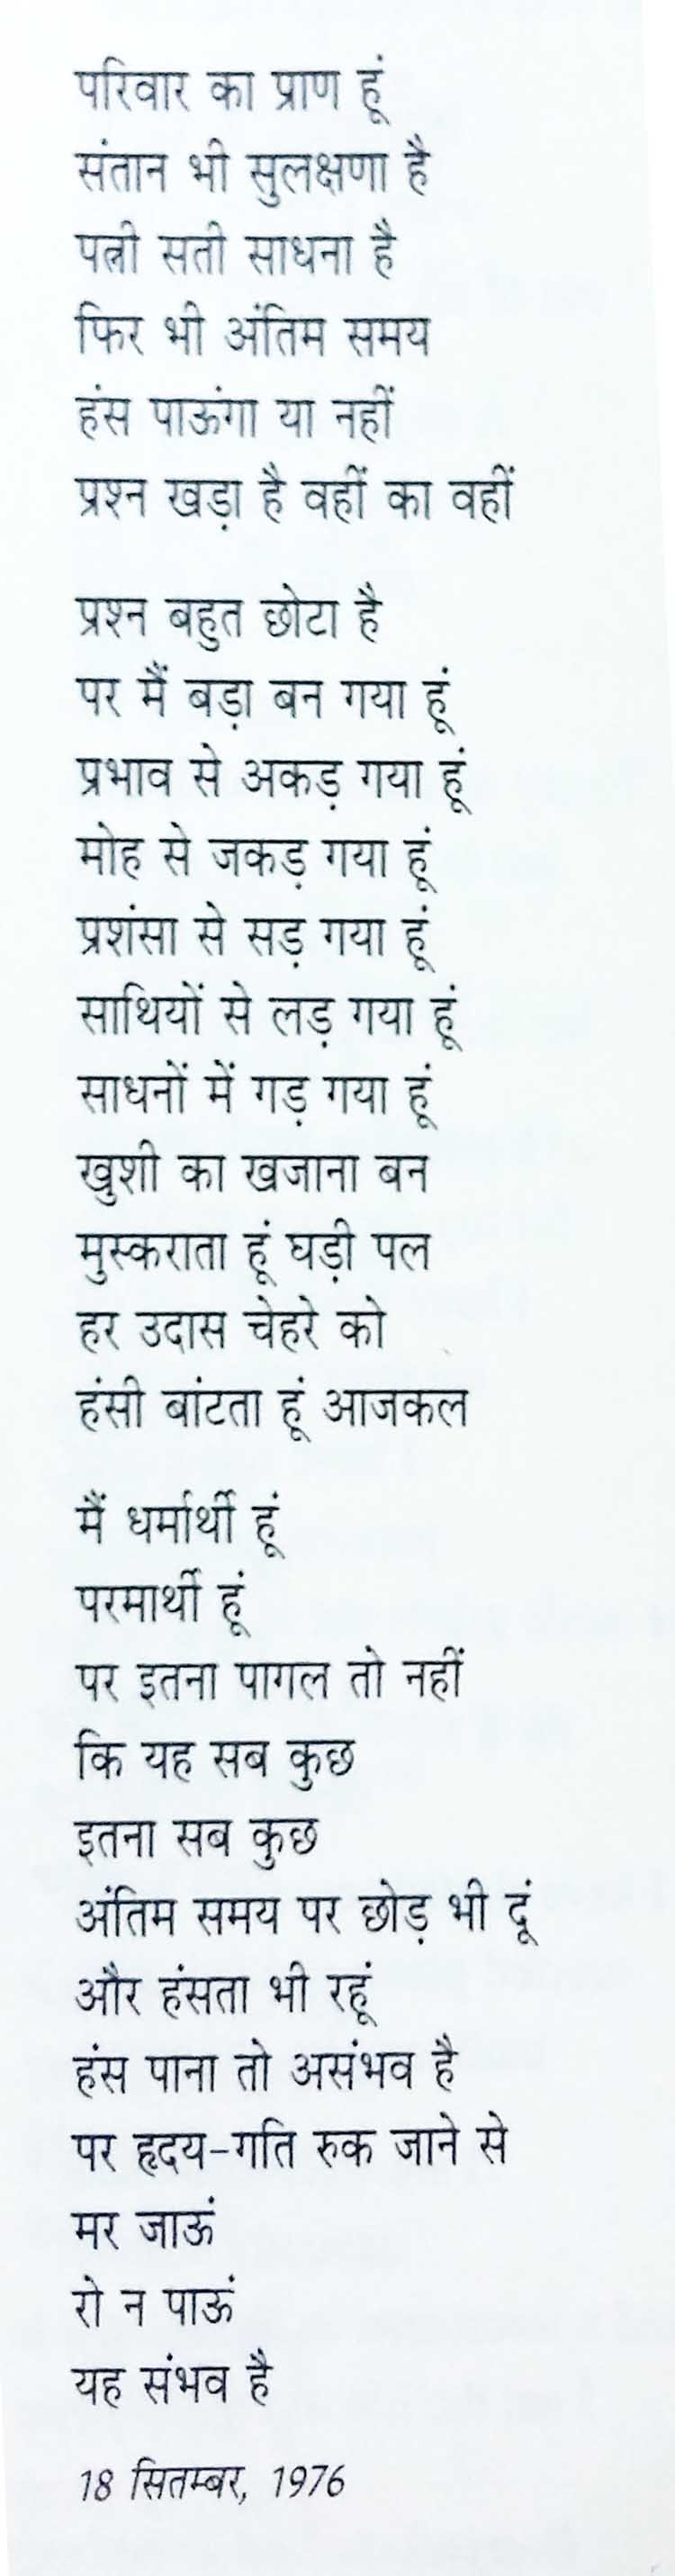 परिवार का प्राण हूं
संतान भी सुलक्षणा है
पत्नी सती साधना है
फिर भी अंतिम समय
हंस पाऊंगा या नहीं
प्रश्न खड़ा है वहीं का वहीं
प्रश्न बहुत छोटा है
पर मैं बड़ा बन गया हूं
प्रभाव से अकड़ गया हूं
मोह से जकड़ गया हूं
प्रशंसा से सड़ गया हूं
साथियों से लड़ गया हूं
साधनों में गड़ गया हूं
खुशी का खजाना बन
मुस्कराता हूं घड़ी पल
हर उदास चेहरे को
हंसी बांटता हूं आजकल
मैं धर्मार्थी हूं
परमार्थी हूं
पर इतना पागल तो नहीं
कि यह सब कुछ
इतना सब कुछ
अंतिम समय पर छोड़ भी दूं
और हंसता भी रहूं
हंस पाना तो असंभव है
पर हृदय-गति रुक जाने से
मर जाऊं
रो न पाऊं
यह संभव है
18 सितम्बर, 1976